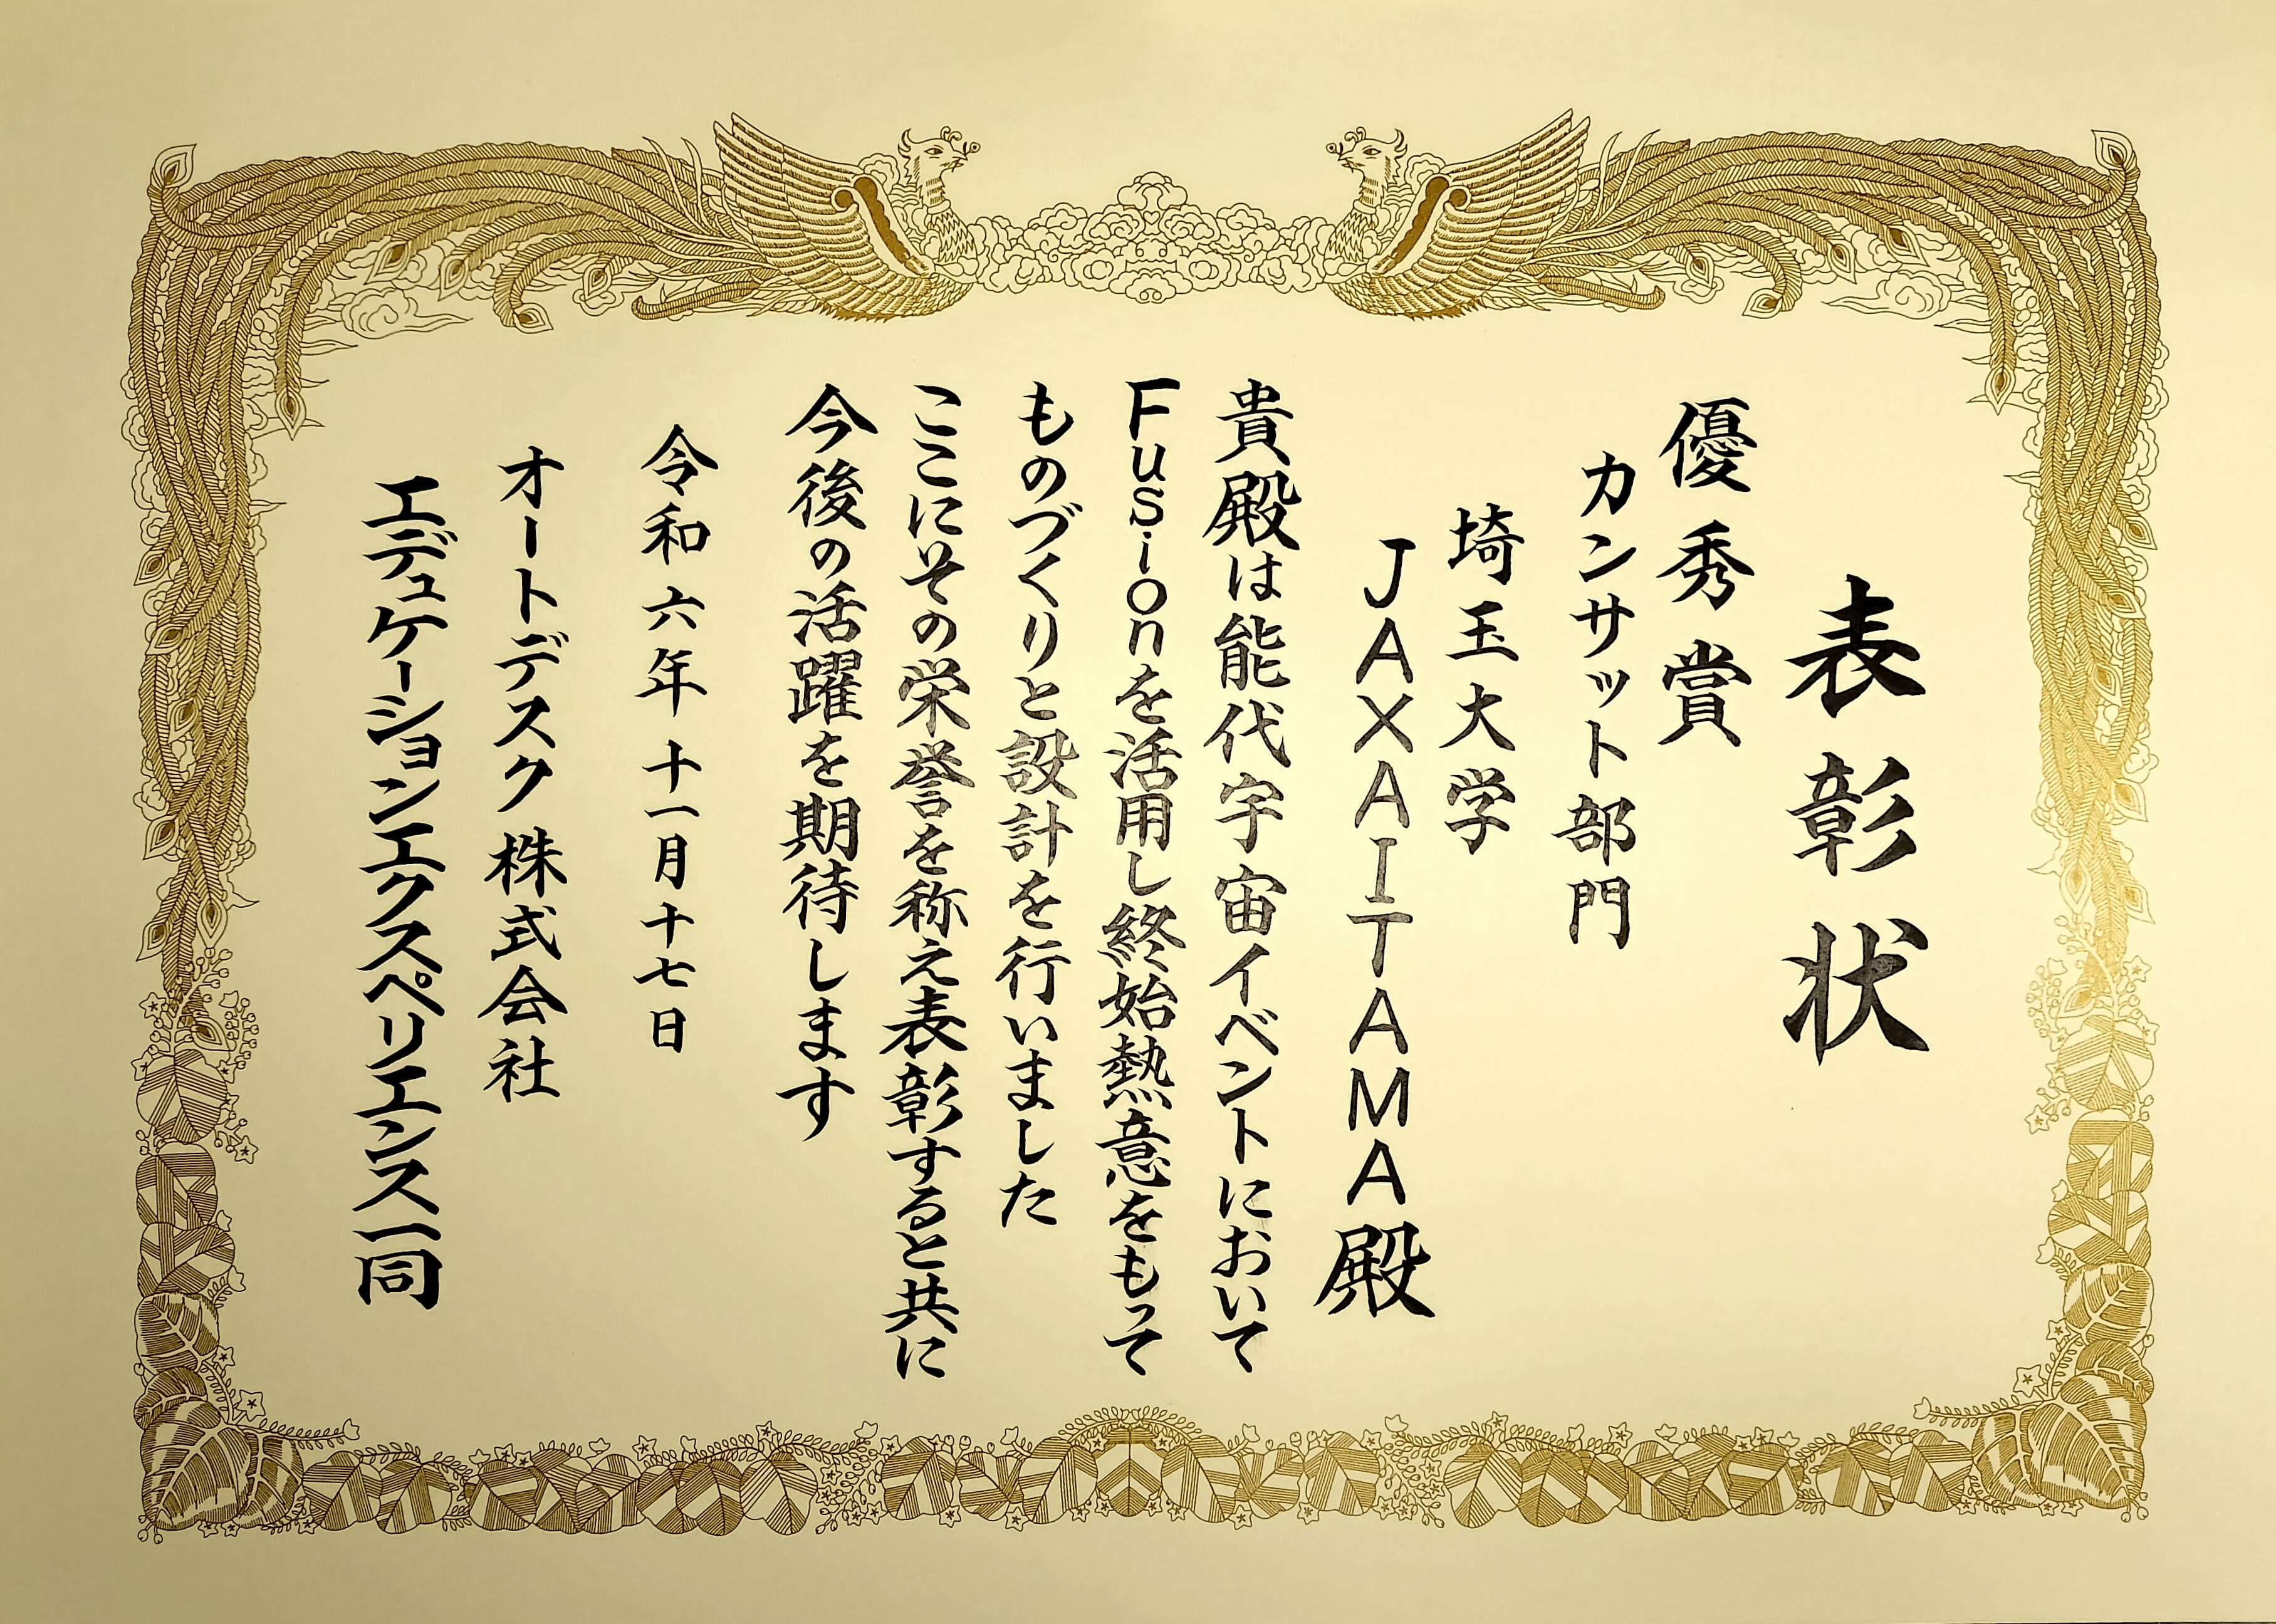 表彰状
優秀賞
カンサット部門
埼玉大学
JAXAITAMA殿
貴殿は能代宇宙イベントにおいて
Fusionを活用し終始熱意をもって
ものづくりと設計を行いました
ここにその栄誉を称え表彰すると共に
今後の活躍を期待します
令和六年十一月十七日
オートデスク株式会社
エデュケーションエクスペリエンス一同